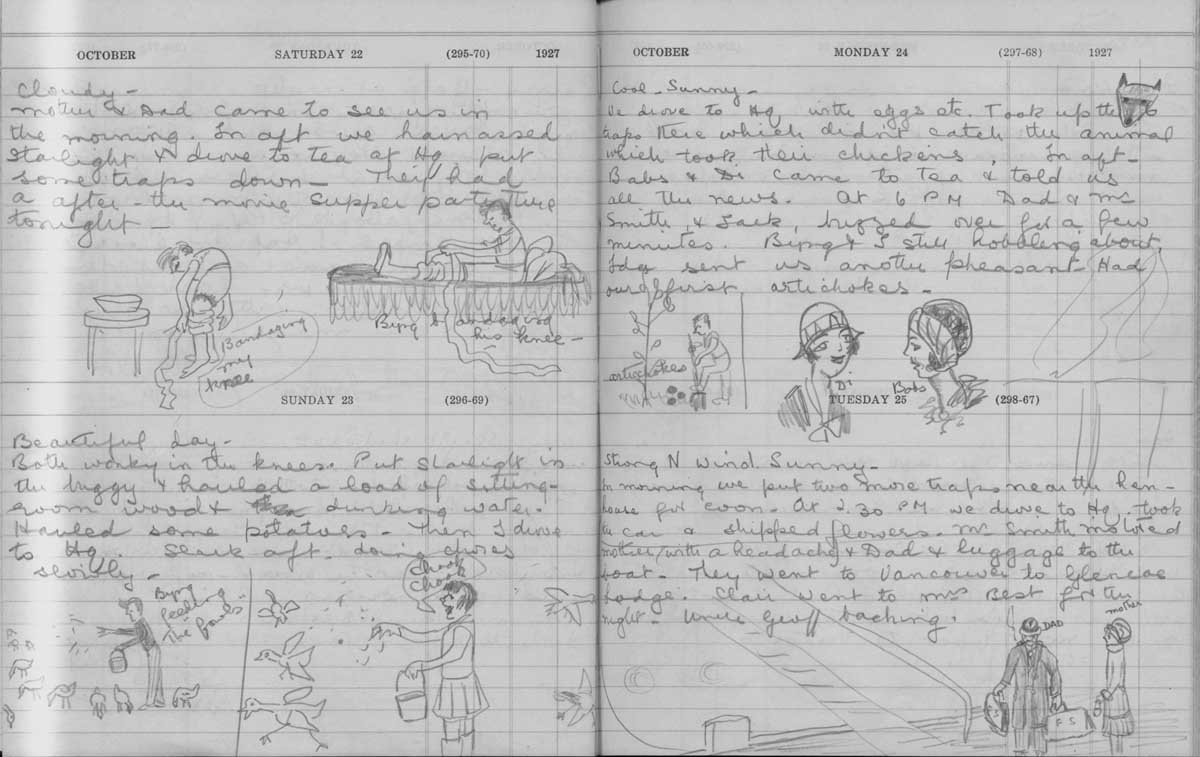 OCTOBER SATURDAY 22 (295-70) 1927
Cloudy -
Mother & Dad came to see us in
the morning. In aft we harnassed
Starlight & drove to tea at Hq. put
some traps down - They had
a after - the movie supper party there
tonight -
Bandaging
my
knee
Byng bandaging
his knee -
SUNDAY 23 (296-69)
Beautiful day -
Both wonky in the knees. Put Starlight in
the buggy & hauled a load of sitting-
room wood & drinking water.
Hauled some potatoes - Then I drove
to Hq. Slack aft. doing chores
slowly -
Byng
feeding
the fowls
Chook
Chook
OCTOBER MONDAY 24 (297-68) 1927
Cool - Sunny -
We drove to Hq with eggs etc. Took up the
traps there which didn't catch the animal
which took their chickens. In aft -
Babs & Di came to tea & told us
all the news. At 6 PM Dad & Mr
Smith & Jack, buzzed over for a few
minutes. Byng & I still hobbling about.
sent us another pheasant - Had
our first artichokes -
artichokes
Di
Babs
TUESDAY 25 (298-67)
Strong N wind. Sunny -
In morning we put two more traps near the hen-
house for coon. At 2.30 PM we drove to Hq. took
the car & shipped flowers. Mr Smith motored
mother/with a headache/ & Dad & luggage to the
boat - They went to Vancouver to Glencoe
Lodge. Clair went to Mrs Best for the
night - Uncle Geoff baching.
DAD
mother
F S